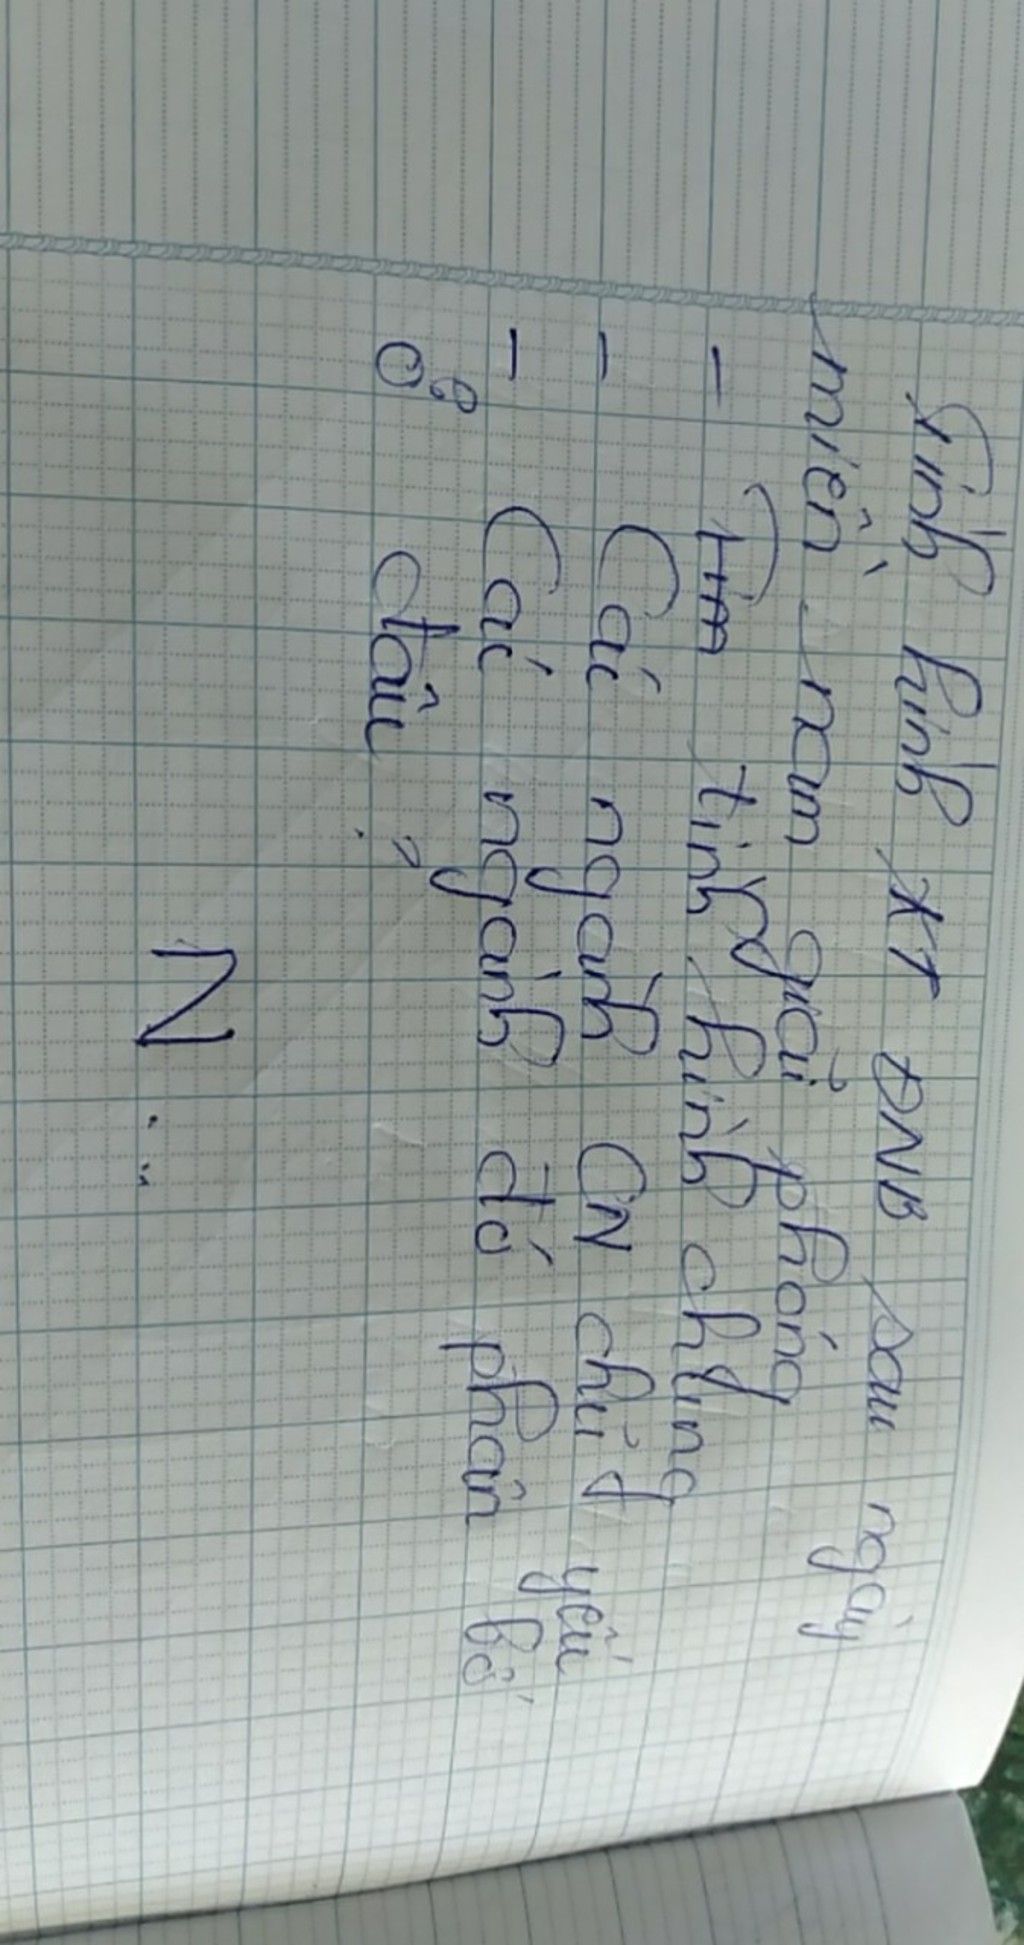 Tình hình KT ĐNB sau ngày
miền nam giải phóng
- Tìm tình hình chung
- Các ngành CN chủ yếu
- Các ngành đó phân bố
ở đâu ?
N :